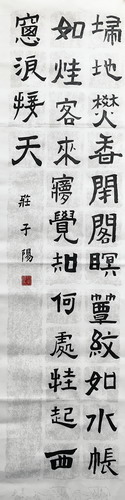 埽地焚香閉閣瞑簟紋如水帳
如烟客來夢覺知何處挂起西
窻浪接天
莊子陽